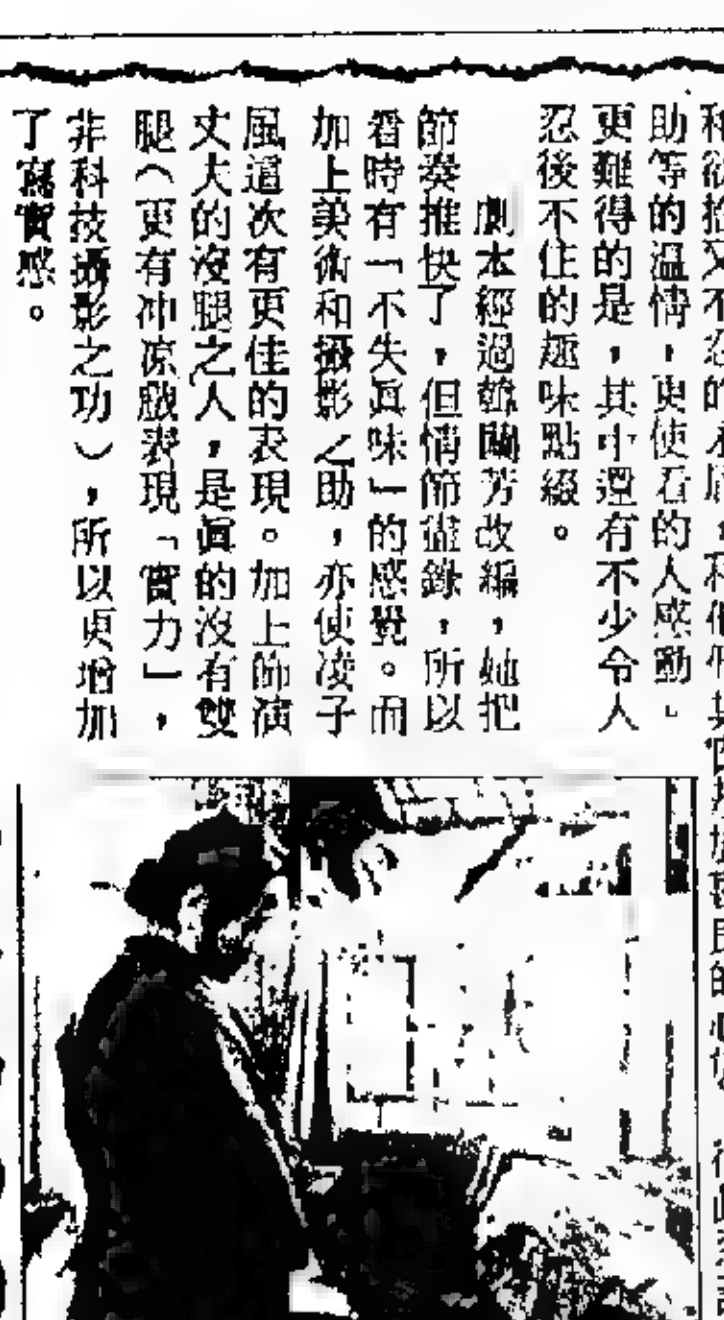 助等的溫情，更使看的人感動。
更難得的是，其中還有不少令人
忍後不住的趣味點綴。
劇本經過韓蘭芳改編，她把
節奏推快了，但情節盡錄，所以
看時有「不失眞味」的感覺。而
加上美術和攝影之助，亦使凌子
風這次有更佳的表現。加上飾演
丈夫的沒腿之人，是眞的沒有雙
腿（更有冲凉戲表現「實力」，
非科技攝影之功），所以更增加
了寫實感。